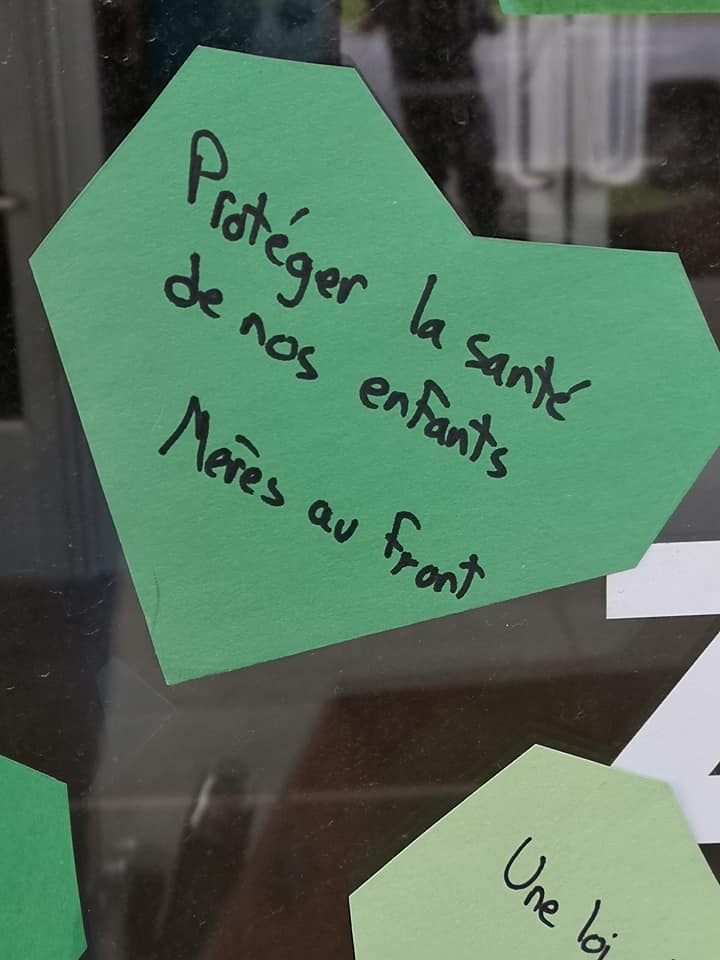 Protéger la santé
de nos enfants
Mères au front
Une loi